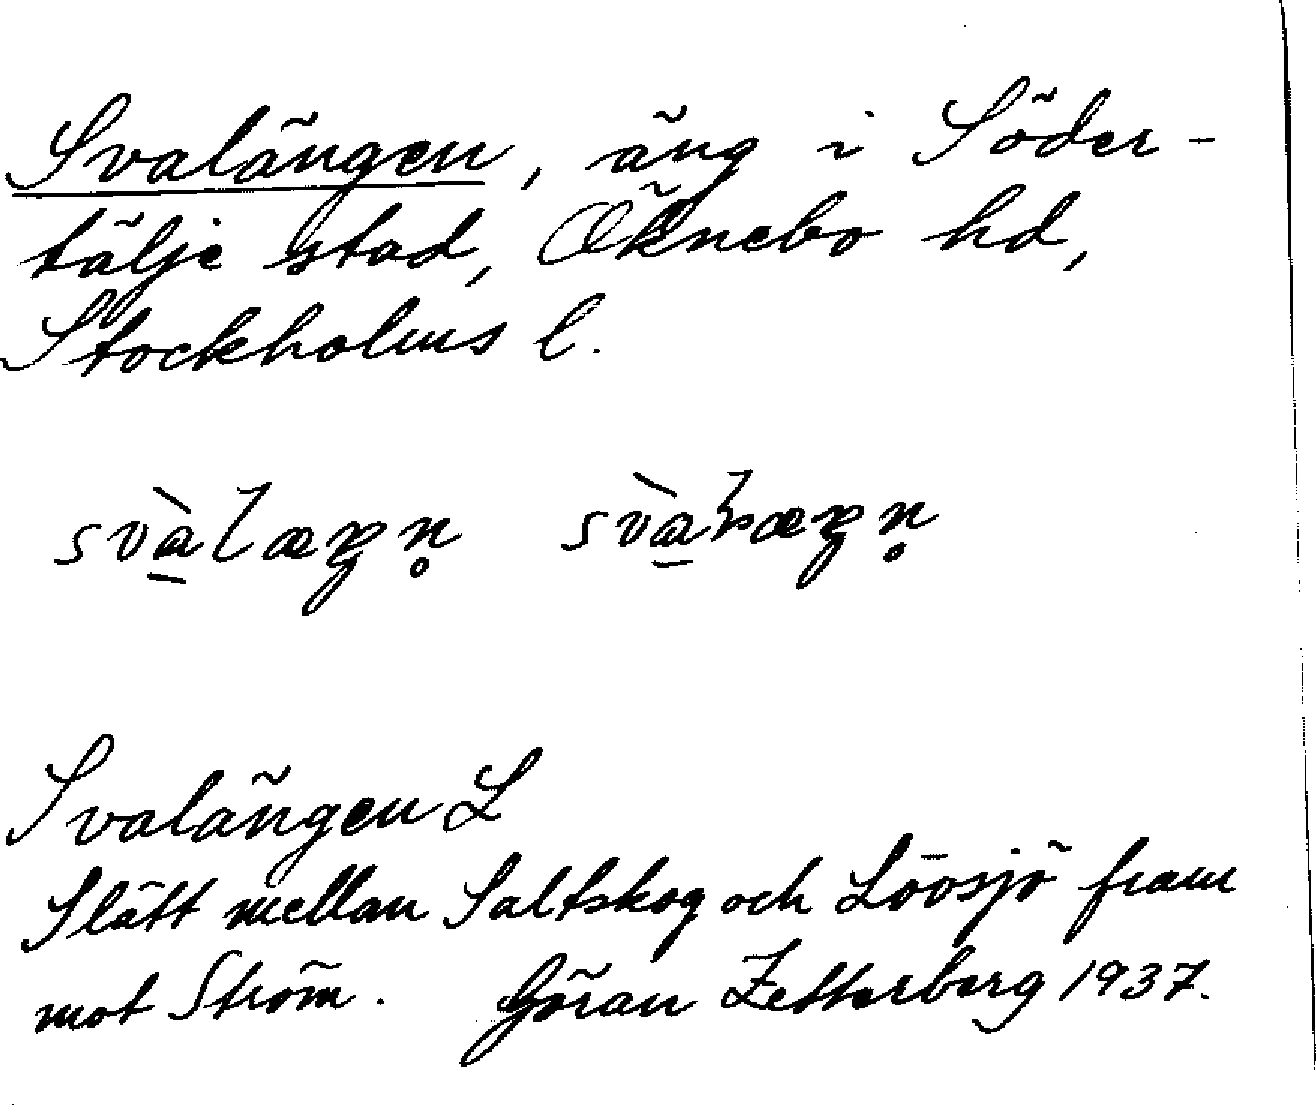 Svalängen, äng i Söder-
tälje stad, Öknebo hd,
Stockholms l.
Svalängen L
Slätt mellan Saltskog och Lövsjö fram
mot Ström. Göran Zetterberg 1937.